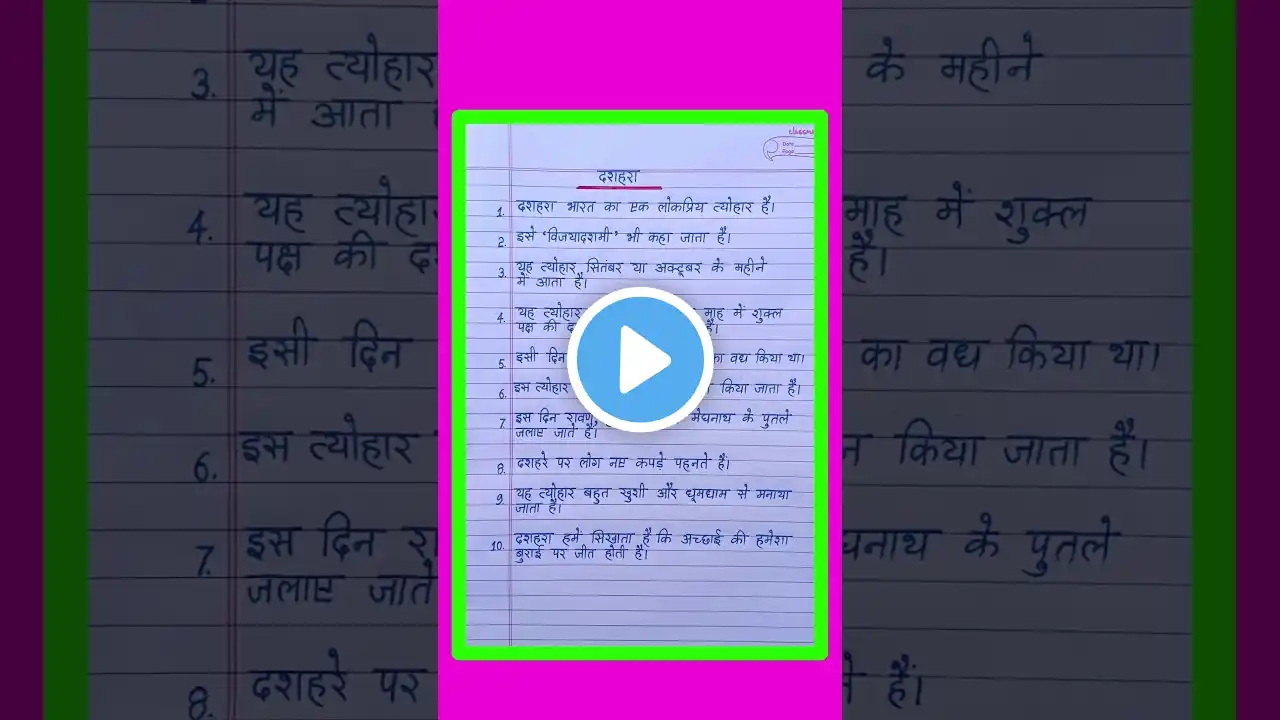 classm
Date
Page
दशहरा
1. दशहरा भारत का एक लोकप्रिय त्योहार है।
2. इसे 'विजयादशमी' भी कहा जाता है।
3. यह त्योहार सितंबर या अक्टूबर के महीने
में आता है।
4. यह त्योहार माह में शुक्ल
पक्ष की है।
5. इसी दिन का वध किया था।
6. इस त्योहार किया जाता है।
7. इस दिन रावण, मेघनाथ के पुतले
जलाए जाते हैं।
8. दशहरे पर लोग नए कपड़े पहनते हैं।
9. यह त्योहार बहुत खुशी और धूमधाम से मनाया
जाता है।
10. दशहरा हमें सिखाता है कि अच्छाई की हमेशा
बुराई पर जीत होती है।